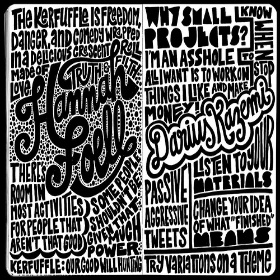 THE KERFUFFLE IS FREEDOM,
DANGER, AND COMEDY WRAPPED
IN A DELICIOUS CRESCENT ROLL
MADE
LOVE
TRUTH
Hannah
Foell
THERE'S
ROOM IN
MOST ACTIVITIES
FOR PEOPLE THAT
AREN'T THAT GOOD
SOME PEOPLE
SHOULDN'T BE
GIVEN THAT
MUCH
POWER
KERFUFFLE: OUR GOOD WILL HUNTING
WHY SMALL
PROJECTS?
I KNOW
WHERE
I'M AN ASSHOLE
ALL I WANT IS TO WORK ON
THINGS I LIKE AND MAKE
MONEY
Darius Kazemi
LISTEN TO YOUR
MATERIALS
PASSIVE
AGGRESSIVE
TWEETS
CHANGE YOUR IDEA
OF WHAT "FINISHED"
MEANS
TRY VARIATIONS ON A THEME